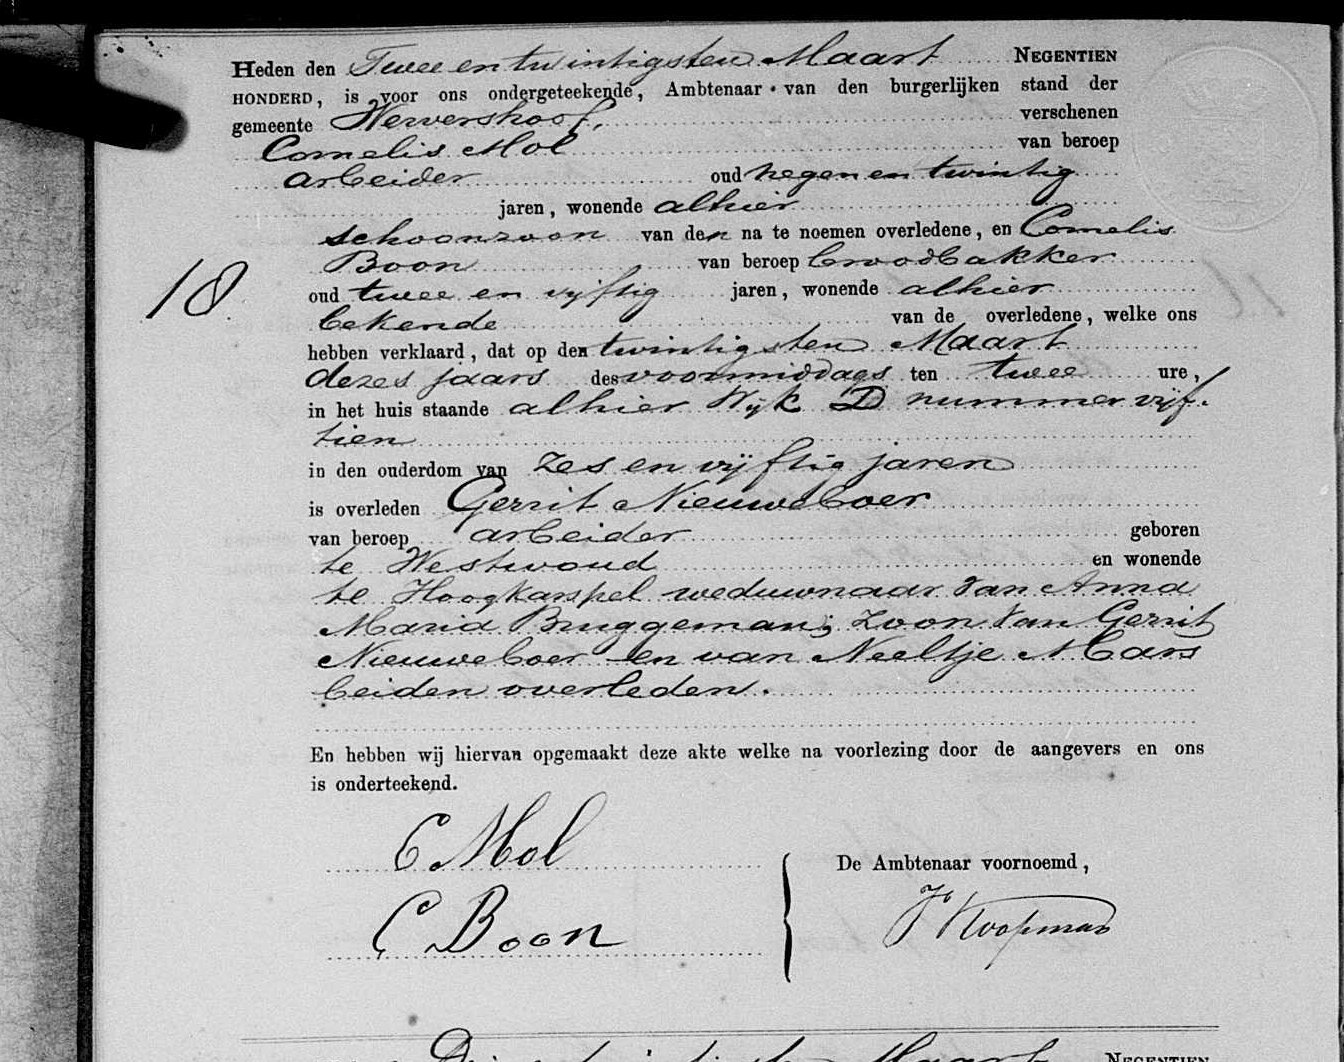 Heden den Twee en twintigsten Maart NEGENTIEN
HONDERD, is voor ons ondergeteekende, Ambtenaar van den burgerlijken stand der
gemeente Wervershoof, verschenen
Cornelis Mol van beroep
arbeider oud negen en twintig
jaren, wonende alhier
schoonzoon van den na te noemen overledene, en Cornelis
Boon van beroep broodbakker
oud twee en vijftig jaren, wonende alhier
18
bekende van de overledene, welke ons
hebben verklaard, dat op den twintigsten Maart
dezes jaars des voormiddags ten twee ure,
in het huis staande alhier Wijk D nummer vijf-
tien
in den ouderdom van zes en vijftig jaren
is overleden Gerrit Nieuweboer
van beroep arbeider geboren
te Westwoud en wonende
te Hoogkarspel weduwnaar van Anna
Maria Bruggeman; Zoon van Gerrit
Nieuweboer en van Neeltje Mars
beiden overleden.
En hebben wij hiervan opgemaakt deze akte welke na voorlezing door de aangevers en ons
is onderteekend.
C Mol
De Ambtenaar voornoemd,
C Boon
J Koopman
Maart NEGENTIEN